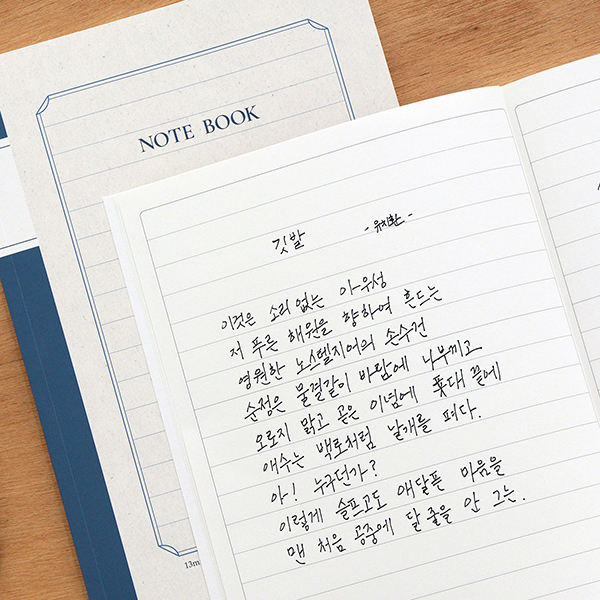 NOTE BOOK
깃발 - 유치환 -
이것은 소리없는 아우성
저 푸른 해원을 향하여 흔드는
영원한 노스텔지어의 손수건
순정은 물결같이 바람에 나부끼고
오로지 맑고 곧은 이념에 푯대 끝에
애수는 백로처럼 날개를 펴다.
아! 누구던가?
이렇게 슬프고도 애달픈 마음을
맨 처음 공중에 달 줄을 안 그는.
13m